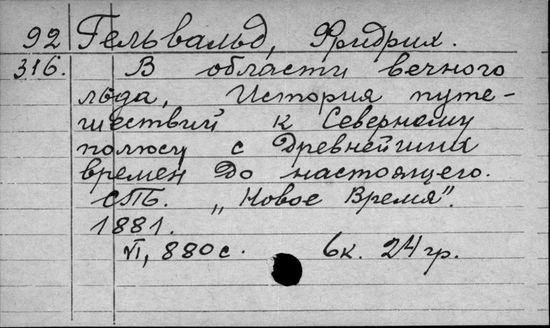 92 Гельвальд, Фридрих.
316. В области вечного
льда, История путе-
шествий к Северному
полюсу с древнейших
времен до настоящего.
СПБ. „Новое Время".
1881.
VI, 880 с. 6 к. 24 гр.